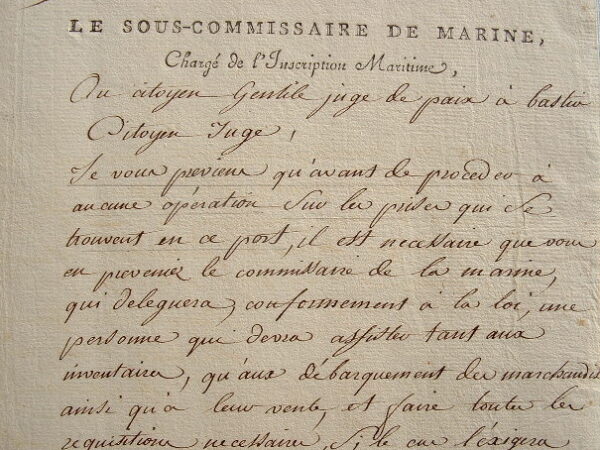 LE SOUS-COMMISSAIRE DE MARINE,
Chargé de l'Inscription Maritime,
Au citoyen Gentile juge de paix à bastia
Citoyen Juge,
Je vous previens qu'avant de proceder à
aucune opération sur les prises qui se
trouvent en ce port, il est necessaire que vous
en preveniez le commissaire de la marine,
qui deleguera, conformement à la loi, une
personne qui devra assister tant aux
inventaires, qu'aux débarquement des marchandis
ainsi qu'à leur vente, et faire toutes les
requisitions necessaires, si le cas l'éxigera